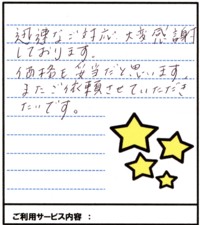 迅速なご対応 大変感謝
しております。
価格も妥当だと思います。
またご依頼させていただき
たいです。
ご利用サービス内容：